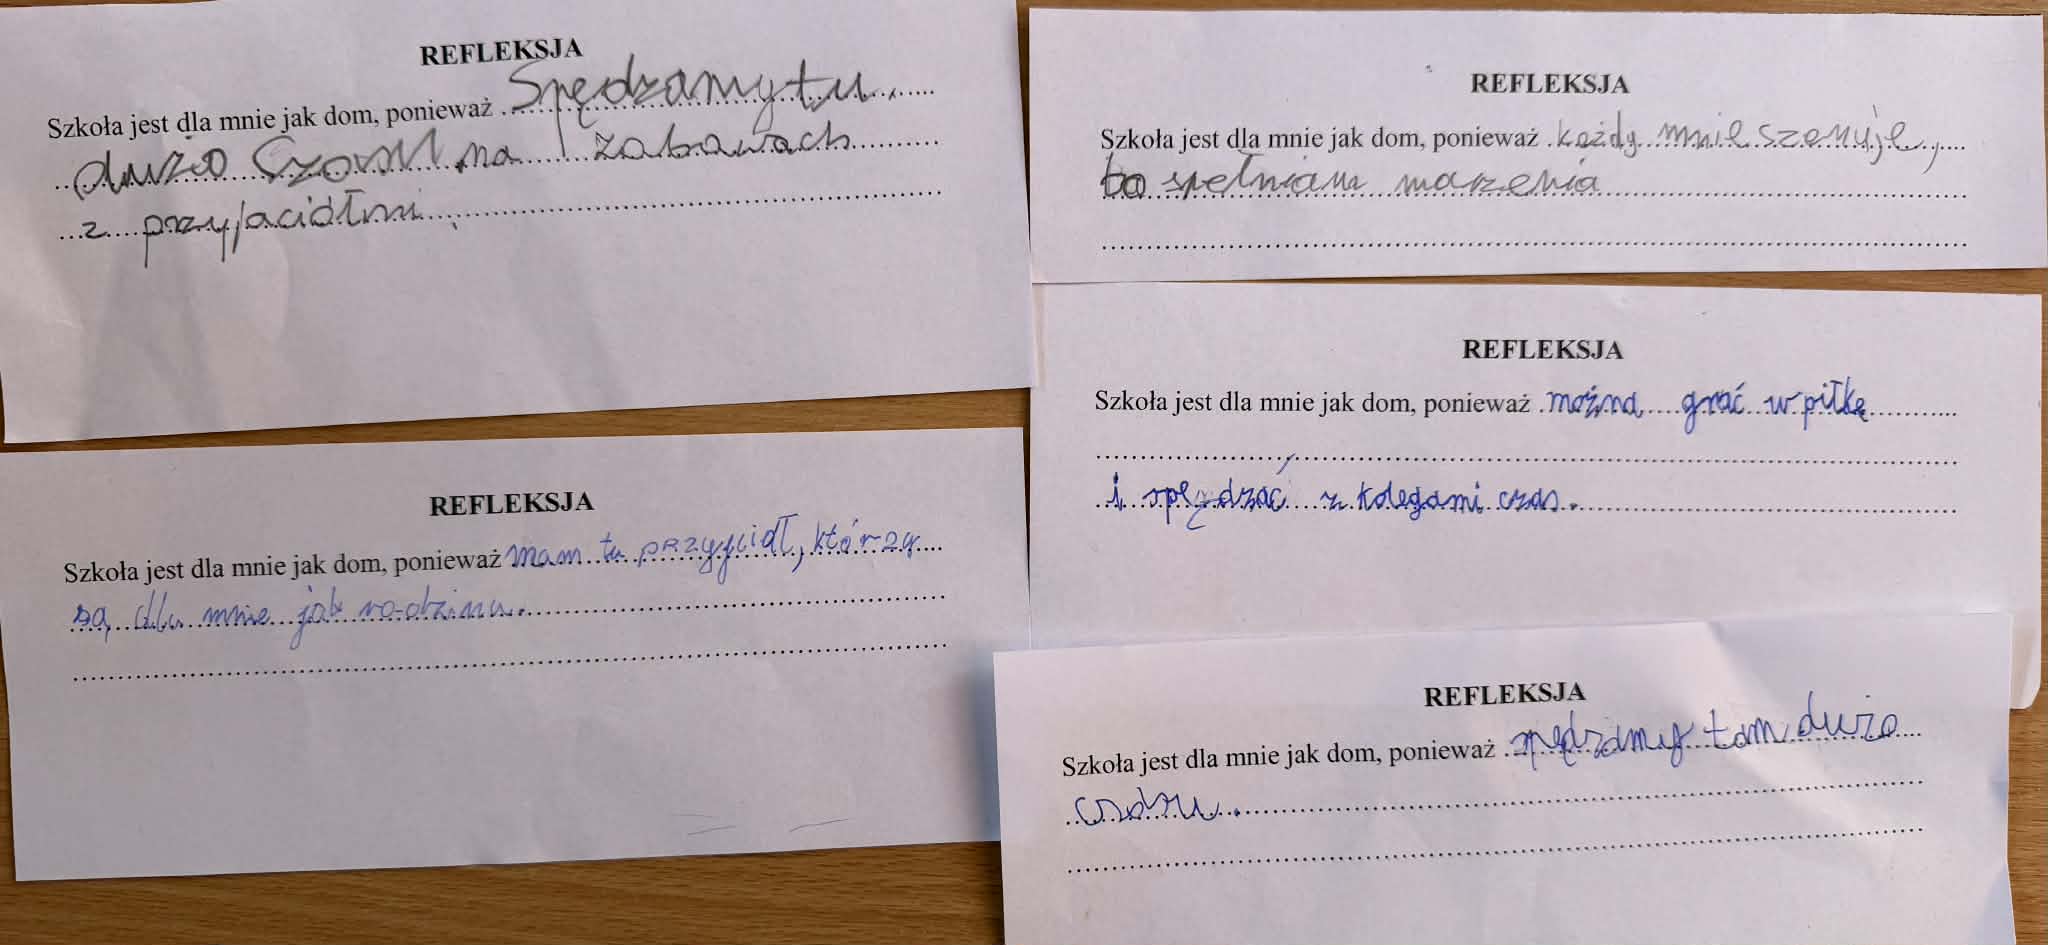 REFLEKSJA
Szkoła jest dla mnie jak dom, ponieważ Spędzamy tu
dużo Czasu na zabawach
z przyjaciółmi.
REFLEKSJA
Szkoła jest dla mnie jak dom, ponieważ mam tu przyjciół, którzy
są dla mnie jak rodzina.
REFLEKSJA
Szkoła jest dla mnie jak dom, ponieważ każdy mnie szanuje,
bo spełniam marzenia
REFLEKSJA
Szkoła jest dla mnie jak dom, ponieważ można grać w piłkę
i spędzać z kolegami czas.
REFLEKSJA
Szkoła jest dla mnie jak dom, ponieważ spędzamy tam dużo
czasu.